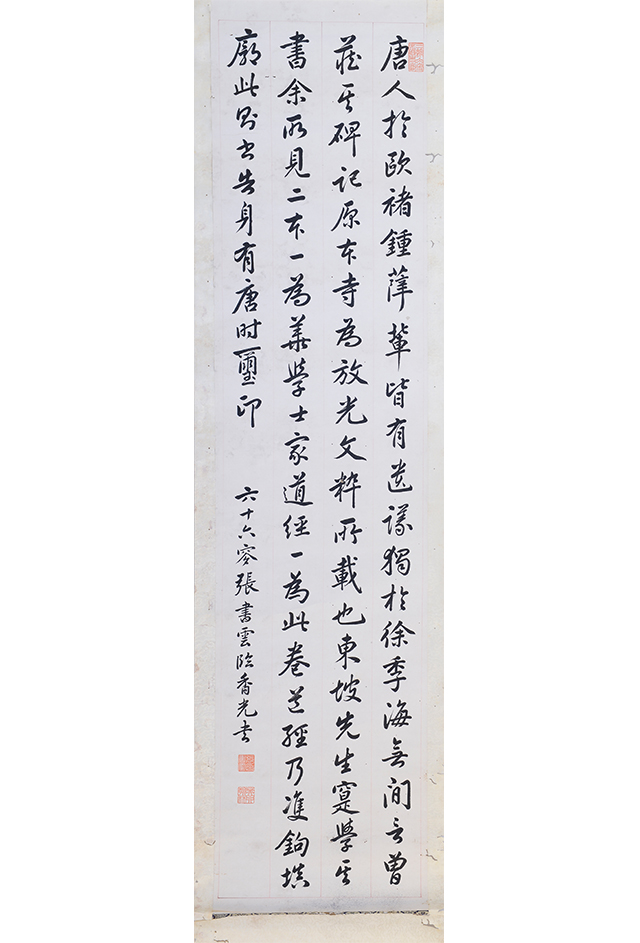 唐人於歐褚鍾薛輩皆有遺議獨於徐季海無間言曾
藏其碑記原本寺為放光文粹所載也東坡先生寔學其
書余所見二本一為華學士家道經一為此卷道經乃雙鉤填
廓此則書告身有唐時璽印
六十六麥張書雲臨香光書